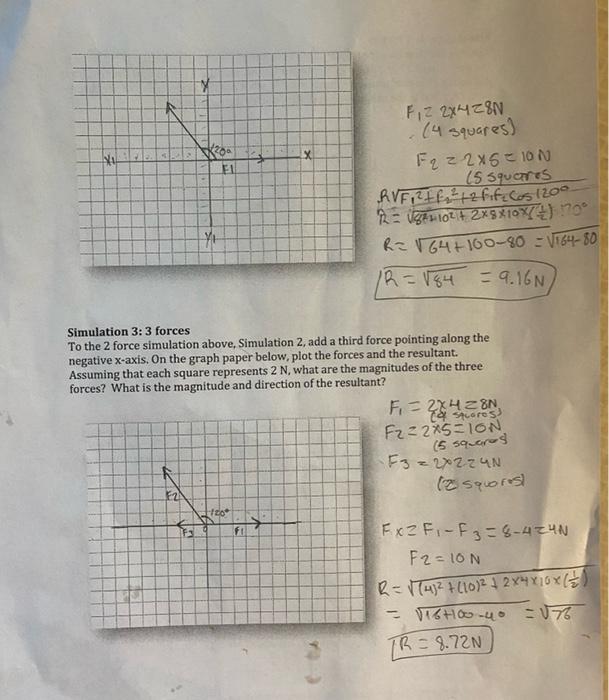 Y
X1
120°
X
F1
Y1
F1 = 2x4 = 8N
(4 squares)
F2 = 2x5 = 10N
(5 squares
R√F1²+F2²+2F1F2 Cos 120°
R = √8²+10²+2x8x10x(½) 120°
R = √64+100-80 = √164-80
R = √84 = 9.16N
Simulation 3: 3 forces
To the 2 force simulation above, Simulation 2, add a third force pointing along the
negative x-axis. On the graph paper below, plot the forces and the resultant.
Assuming that each square represents 2 N, what are the magnitudes of the three
forces? What is the magnitude and direction of the resultant?
F1 = 2x4 = 8N
(4 squares)
F2 = 2x5 = 10N
(5 squares
F3 = 2x2 = 4N
(2 squares)
F2
120°
F3
F1
Fx = F1 - F3 = 8-4 = 4N
F2 = 10 N
R = √(4)²+(10)²+2x4x10x(-½)
= √16+100-40 = √76
R = 8.72N